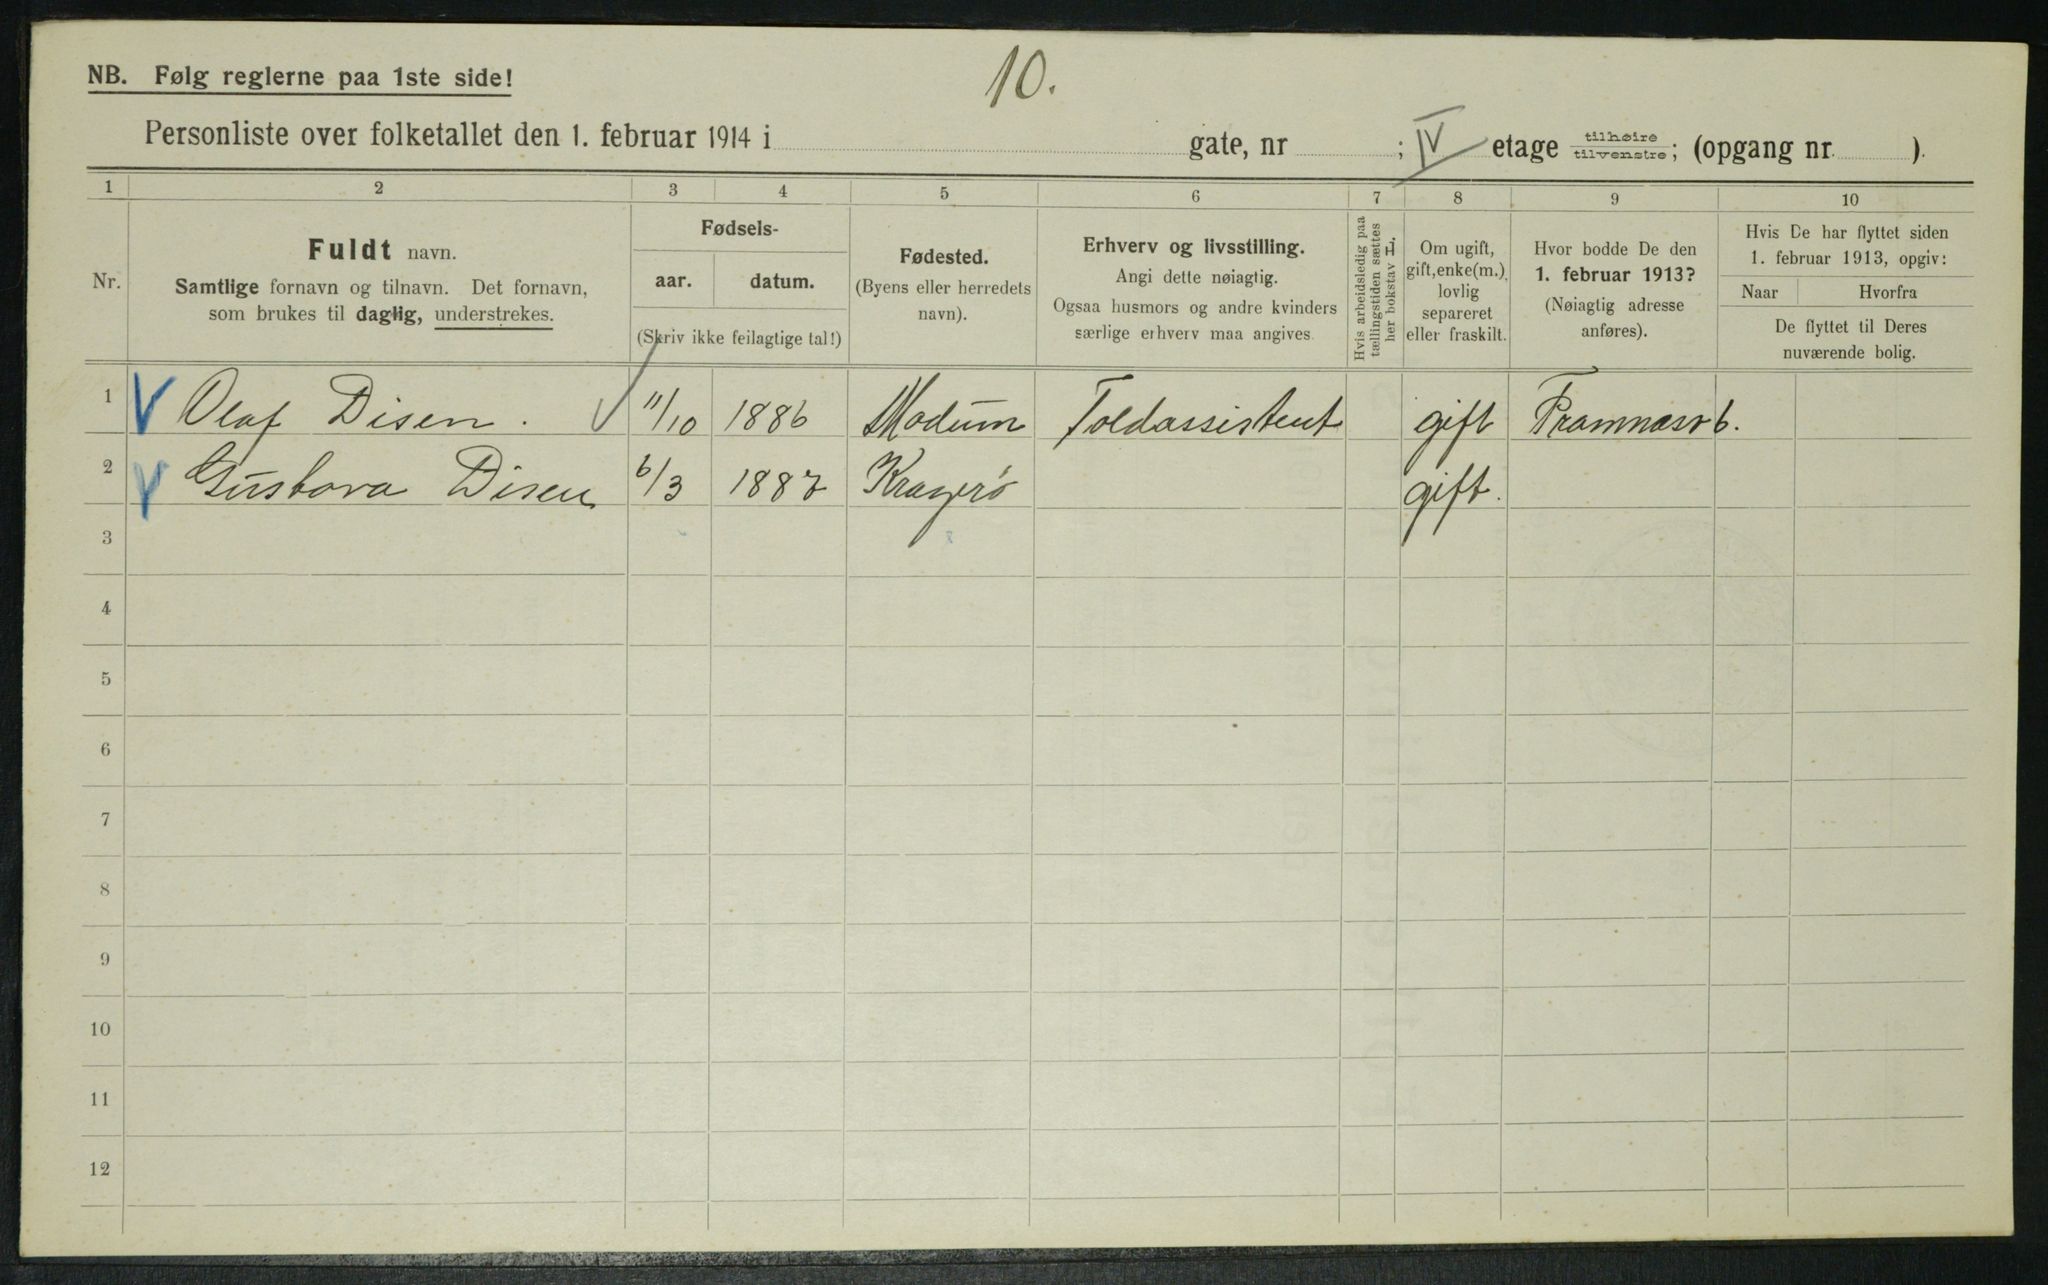 10.
NB. Følg reglerne paa 1ste side!
Personliste over folketallet den 1. februar 1914 i gate, nr ; IV etage tilhøire tilvenstre; (opgang nr. ).
1 2 3 4 5 6 7 8 9 10
Nr.
Fuldt navn.
Samtlige fornavn og tilnavn. Det fornavn,
som brukes til daglig, understrekes.
Fødsels-
aar. datum.
(Skriv ikke feilagtige tal!)
Fødested.
(Byens eller herredets
navn).
Erhverv og livsstilling.
Angi dette nøiagtig.
Ogsaa husmors og andre kvinders
særlige erhverv maa angives.
Hvis arbeidsledig paa
tællingstiden sættes
her bokstav L.
Om ugift,
gift, enke(m.),
lovlig
separeret
eller fraskilt.
Hvor bodde De den
1. februar 1913?
(Nøiagtig adresse
anføres).
Hvis De har flyttet siden
1. februar 1913, opgiv:
Naar Hvorfra
De flyttet til Deres
nuværende bolig.
1 Olaf Disen. 11/10 1886 Modum Toldassistent gift 6.
2 Gustava Disen 6/3 1887 Kragerö gift.
3
4
5
6
7
8
9
10
11
12